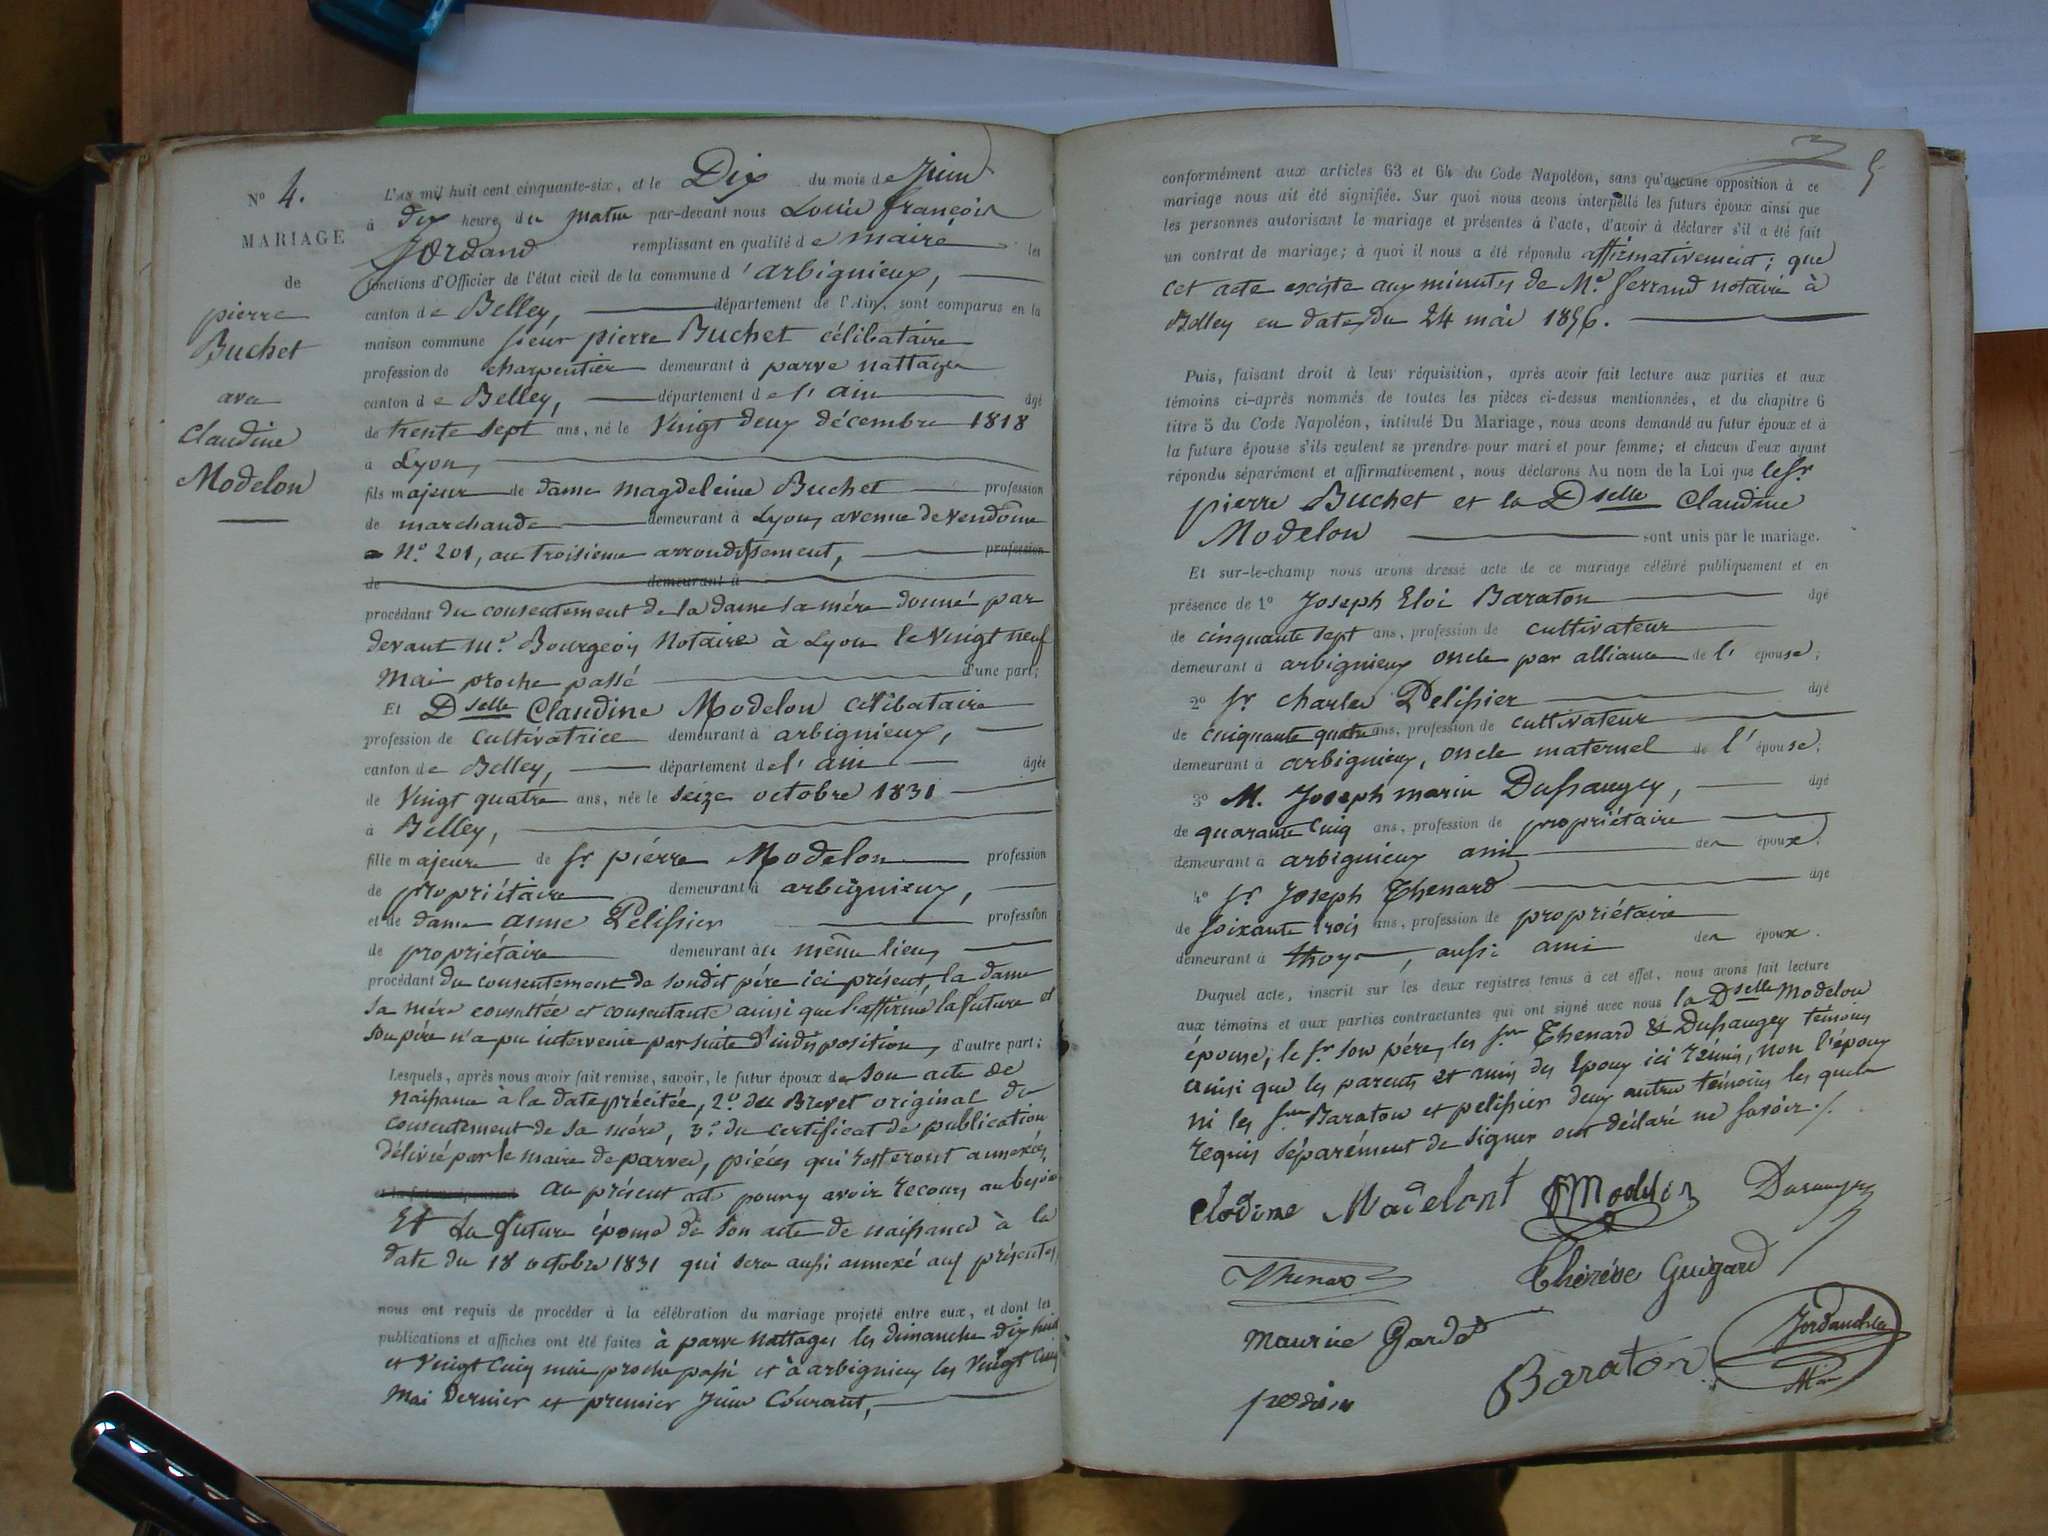 N° 4.
MARIAGE
de
pierre
Buchet
avec
Claudine
Modelon
L'an mil huit cent cinquante-six, et le Dix du mois de Juin
à dix heures du matin par-devant nous Louis françois
Jordand remplissant en qualité de maire les
fonctions d'Officier de l'état civil de la commune d'arbignieux,
canton de Belley, département de l'Ain, sont comparus en la
maison commune sieur pierre Buchet célibataire
profession de charpentier demeurant à parve nattages
canton de Belley, département de l'ain âgé
de trente sept ans, né le Vingt deux décembre 1818
à Lyon,
fils majeur de dame magdeleine Buchet profession
de marchande demeurant à Lyon, avenue de Vendôme
N° 201, au troisieme arrondissement, profession
de demeurant à
procédant du consentement de la dame sa mére donné par
devant Me Bourgeois Notaire à Lyon le Vingt neuf
Mai proche passé d'une part;
Et Dselle Claudine Modelon célibataire
profession de cultivatrice demeurant à arbignieux,
canton de Belley, département de l'ain âgée
de Vingt quatre ans, née le seize octobre 1831
à Belley,
fille majeure de Sr piérre Modelon profession
de propriétaire demeurant à arbignieux,
et de dame anne Pelissier profession
de propriétaire demeurant au même lieu,
procédant du consentement de sondit pére ici présent, la dame
sa mére consultée et consentante ainsi que l'affirme la future et
son pére n'a pu intervenir par suite d'indisposition, d'autre part;
Lesquels, après nous avoir fait remise, savoir, le futur époux de son acte de
Naissance à la date précitée, 2° du Brevet original du
consentement de sa mére, 3° du certificat de publication
délivré par le maire de parves, piéces qui resteront annexées
au présent acte pour y avoir recours au besoin
Et la future épouse de son acte de naissance à la
date du 18 octobre 1831 qui sera aussi annexé aux présentes,
nous ont requis de procéder à la célébration du mariage projeté entre eux, et dont les
publications et affiches ont été faites à parve Nattages les dimanche dix huit
et Vingt Cinq mai proche passé et à arbignieux les Vingt Cinq
Mai Dernier et premier Juin Courant,
5
conformément aux articles 63 et 64 du Code Napoléon, sans qu'aucune opposition à ce
mariage nous ait été signifiée. Sur quoi nous avons interpellé les futurs époux ainsi que
les personnes autorisant le mariage et présentes à l'acte, d'avoir à déclarer s'il a été fait
un contrat de mariage; à quoi il nous a été répondu affirmativement; que
cet acte existe aux minutes de Me ferrand notaire à
Belley en date du 24 mai 1856.
Puis, faisant droit à leur réquisition, après avoir fait lecture aux parties et aux
témoins ci-après nommés de toutes les pièces ci-dessus mentionnées, et du chapitre 6
titre 5 du Code Napoléon, intitulé Du Mariage, nous avons demandé au futur époux et à
la future épouse s'ils veulent se prendre pour mari et pour femme; et chacun d'eux ayant
répondu séparément et affirmativement, nous déclarons Au nom de la Loi que le Sr
pierre Buchet et la Dselle Claudine
Modelon sont unis par le mariage.
Et sur-le-champ nous avons dressé acte de ce mariage célébré publiquement et en
présence de 1° Joseph Eloi Baraton âgé
de cinquante sept ans, profession de cultivateur
demeurant à arbignieux oncle par alliance de l'épouse;
2° Sr charles Pelissier âgé
de cinquante quatre ans, profession de cultivateur
demeurant à arbignieux, oncle maternel de l'épouse;
3° M. Joseph marin Dussaugey, âgé
de quarante Cinq ans, profession de propriétaire
demeurant à arbignieux ami des époux;
4° Sr Joseph Thenard âgé
de soixante trois ans, profession de propriétaire
demeurant à thoys, aussi ami des époux.
Duquel acte, inscrit sur les deux registres tenus à cet effet, nous avons fait lecture
aux témoins et aux parties contractantes qui ont signé avec nous la Dselle Modelon
épouse, le Sr son pére, les Srs Thenard & Dussaugey témoins
ainsi que les parents et amis des Epoux ici réunis, non l'époux
ni les Srs Baraton et pelissier deux autres témoins les quels
requis séparément de signer ont déclaré ne savoir ./.
Clodine Madelont Modelon Dusaugey
Thenard Thérése Guigard
Maurice Gardet
Baraton Jordand
perrin